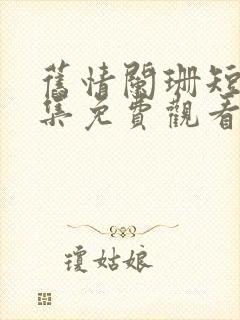 舊情闌珊短
集免費觀看
瓊姑娘